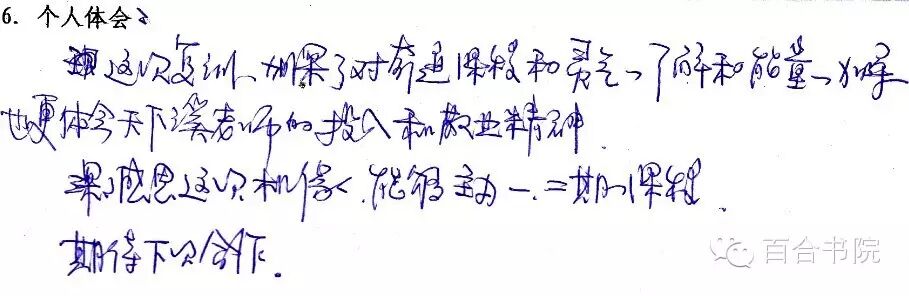 6. 个人体会:
这次复训、加深了对 课程和灵气的了解和能量的加深
也更体会天下溪老师的投入和敬业精神.
深深感恩这次机缘,能够 一.二期的课程.
期待下次 下.
百合书院